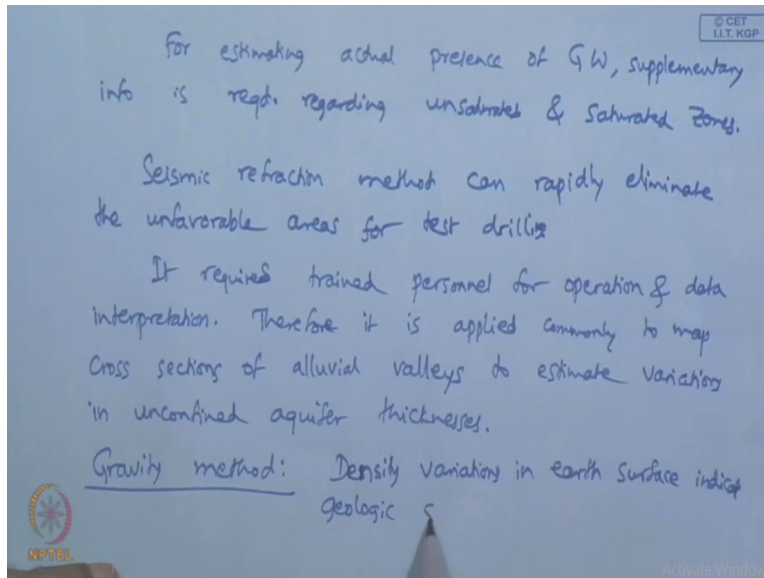 © CET
I.I.T. KGP
For estimating actual presence of GW, supplementary
info is reqd. regarding unsaturated & saturated zones.
Seismic refraction method can rapidly eliminate
the unfavorable areas for test drilling
It requires trained personnel for operation & data
interpretation. Therefore it is applied commonly to map
cross sections of alluvial valleys to estimate variations
in unconfined aquifer thicknesses.
Gravity method: Density variations in earth surface indicate
geologic s
NPTEL
Activate Window